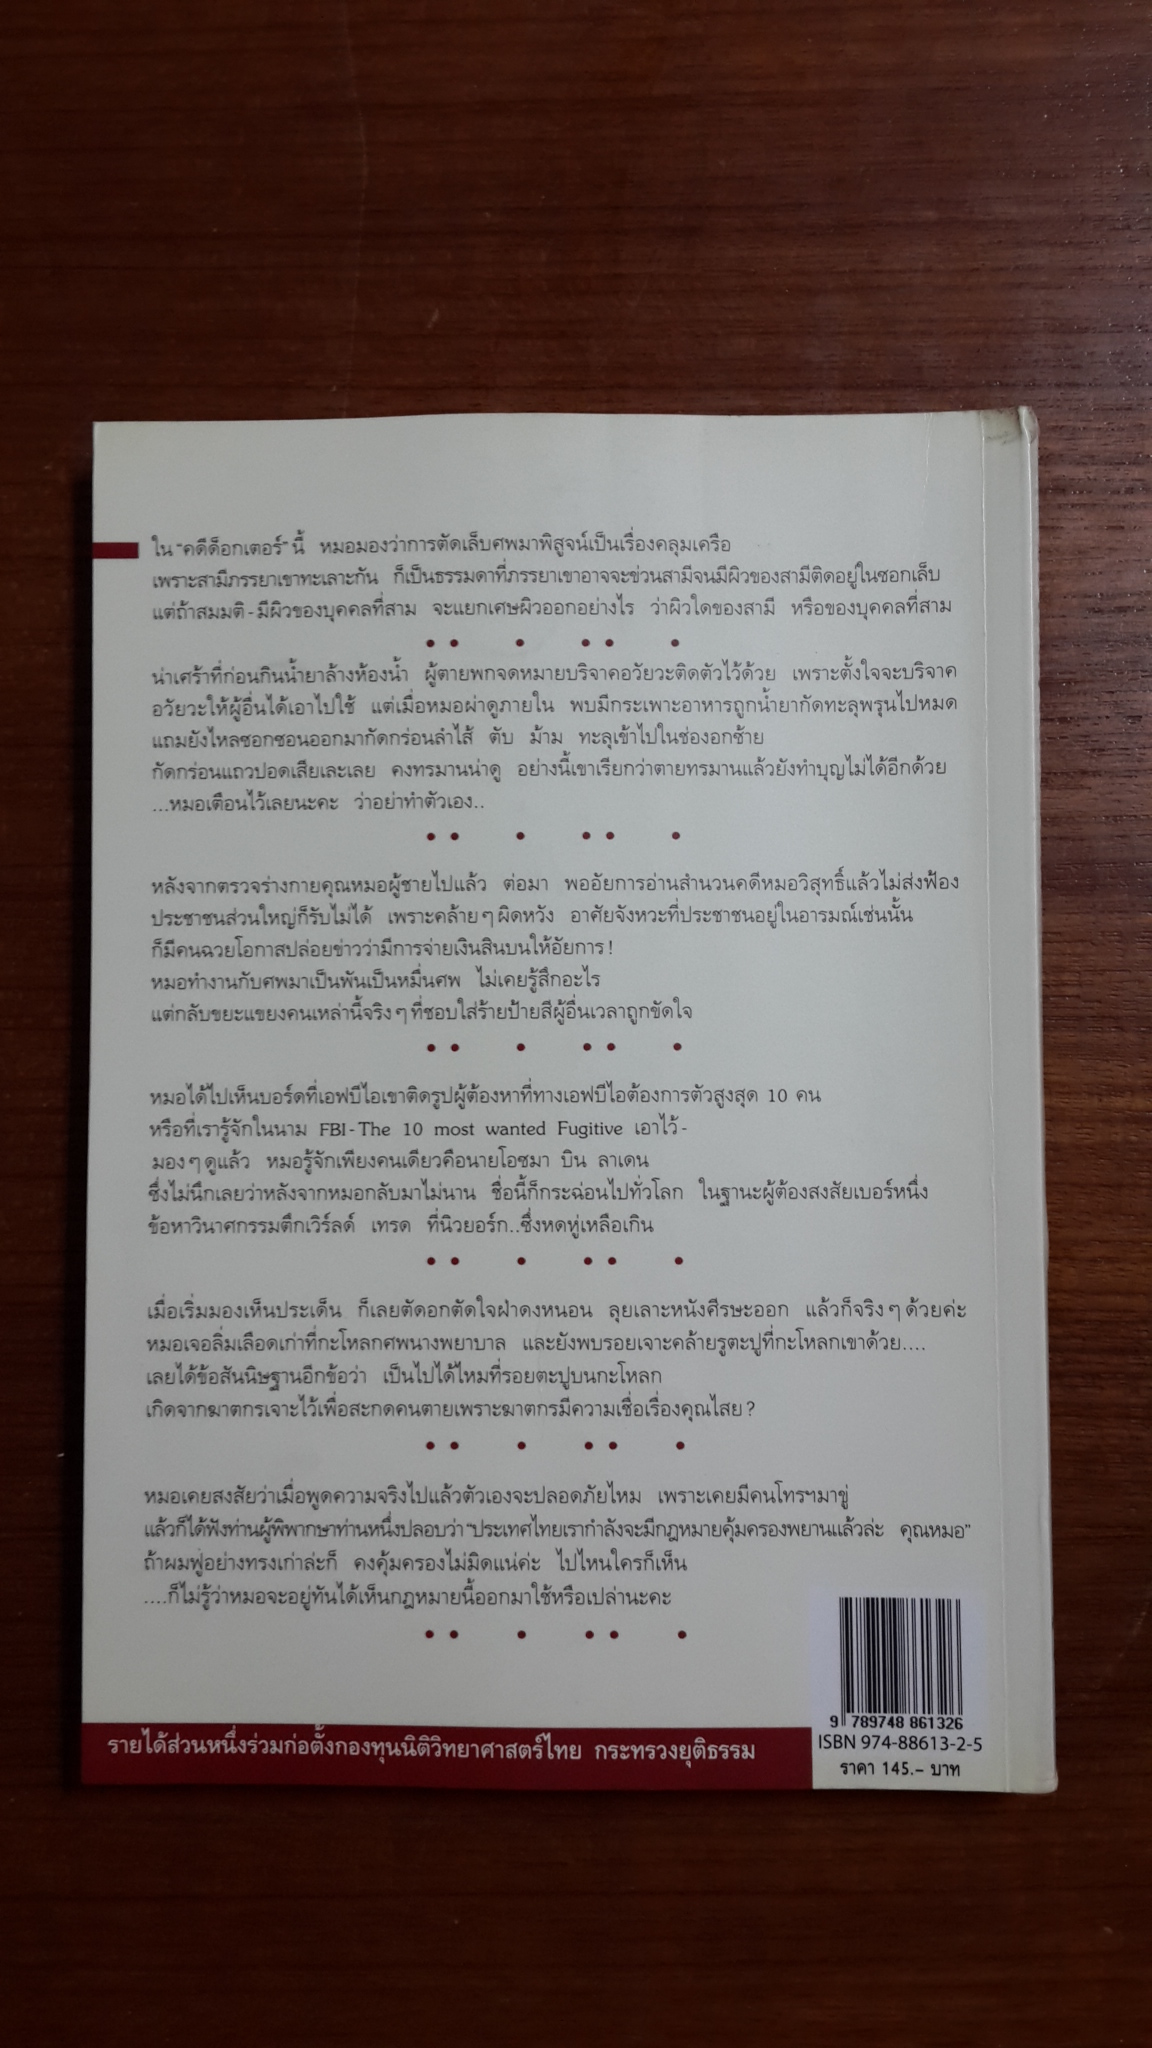 ใน "คดีด็อกเตอร์" นี้ หมอมองว่าการตัดเล็บศพมาพิสูจน์เป็นเรื่องคลุมเครือ
เพราะสามีภรรยาเขาทะเลาะกัน ก็เป็นธรรมดาที่ภรรยาเขาอาจจะข่วนสามีจนมีผิวของสามีติดอยู่ในซอกเล็บ
แต่ถ้าสมมติ - มีผิวของบุคคลที่สาม จะแยกเศษผิวออกอย่างไร ว่าผิวใดของสามี หรือของบุคคลที่สาม
น่าเศร้าที่ก่อนกินน้ำยาล้างห้องน้ำ ผู้ตายพกจดหมายบริจาคอวัยวะติดตัวไว้ด้วย เพราะตั้งใจจะบริจาค
อวัยวะให้ผู้อื่นได้เอาไปใช้ แต่เมื่อหมอผ่าดูภายใน พบมีกระเพาะอาหารถูกน้ำยากัดทะลุพรุนไปหมด
แถมยังไหลซอกซอนออกมากัดกร่อนลำไส้ ตับ ม้าม ทะลุเข้าไปในช่องอกซ้าย
กัดกร่อนแถวปอดเสียเละเลย คงทรมานน่าดู อย่างนี้เขาเรียกว่าตายทรมานแล้วยังทำบุญไม่ได้อีกด้วย
...หมอเตือนไว้เลยนะคะ ว่าอย่าทำตัวเอง..
หลังจากตรวจร่างกายคุณหมอผู้ชายไปแล้ว ต่อมา พออัยการอ่านสำนวนคดีหมอวิสุทธิ์แล้วไม่ส่งฟ้อง
ประชาชนส่วนใหญ่ก็รับไม่ได้ เพราะคล้ายๆ ผิดหวัง อาศัยจังหวะที่ประชาชนอยู่ในอารมณ์เช่นนั้น
ก็มีคนฉวยโอกาสปล่อยข่าวว่ามีการจ่ายเงินสินบนให้อัยการ!
หมอทำงานกับศพมาเป็นพันเป็นหมื่นศพ ไม่เคยรู้สึกอะไร
แต่กลับขยะแขยงคนเหล่านี้จริงๆ ที่ชอบใส่ร้ายป้ายสีผู้อื่นเวลาถูกขัดใจ
หมอได้ไปเห็นบอร์ดที่เอฟบีไอเขาติดรูปผู้ต้องหาที่ทางเอฟบีไอต้องการตัวสูงสุด 10 คน
หรือที่เรารู้จักในนาม FBI - The 10 most wanted Fugitive เอาไว้ -
มองๆ ดูแล้ว หมอรู้จักเพียงคนเดียวคือนายโอซมา บิน ลาเดน
ซึ่งไม่นึกเลยว่าหลังจากหมอกลับมาไม่นาน ชื่อนี้ก็กระฉ่อนไปทั่วโลก ในฐานะผู้ต้องสงสัยเบอร์หนึ่ง
ข้อหาวินาศกรรมตึกเวิร์ลด์ เทรด ที่นิวยอร์ก..ซึ่งหดหู่เหลือเกิน
เมื่อเริ่มมองเห็นประเด็น ก็เลยตัดอกตัดใจฝ่าดงหนอน ลุยเลาะหนังศีรษะออก แล้วก็จริงๆ ด้วยค่ะ
หมอเจอลิ่มเลือดเก่าที่กะโหลกศพนางพยาบาล และยังพบรอยเจาะคล้ายรูตะปูที่กะโหลกเขาด้วย....
เลยได้ข้อสันนิษฐานอีกข้อว่า เป็นไปได้ไหมที่รอยตะปูบนกะโหลก
เกิดจากฆาตกรเจาะไว้เพื่อสะกดคนตายเพราะฆาตกรมีความเชื่อเรื่องคุณไสย?
หมอเคยสงสัยว่าเมื่อพูดความจริงไปแล้วตัวเองจะปลอดภัยไหม เพราะเคยมีคนโทรฯมาขู่
แล้วก็ได้ฟังท่านผู้พิพากษาท่านหนึ่งปลอบว่า "ประเทศไทยเรากำลังจะมีกฎหมายคุ้มครองพยานแล้วล่ะ คุณหมอ"
ถ้าผมฟูอย่างทรงเก่าล่ะก็ คงคุ้มครองไม่มิดแน่ค่ะ ไปไหนใครก็เห็น
....ก็ไม่รู้ว่าหมอจะอยู่ทันได้เห็นกฎหมายนี้ออกมาใช้หรือเปล่านะคะ
9 789748 861326
ISBN 974-88613-2-5
ราคา 145.- บาท
รายได้ส่วนหนึ่งร่วมก่อตั้งกองทุนนิติวิทยาศาสตร์ไทย กระทรวงยุติธรรม